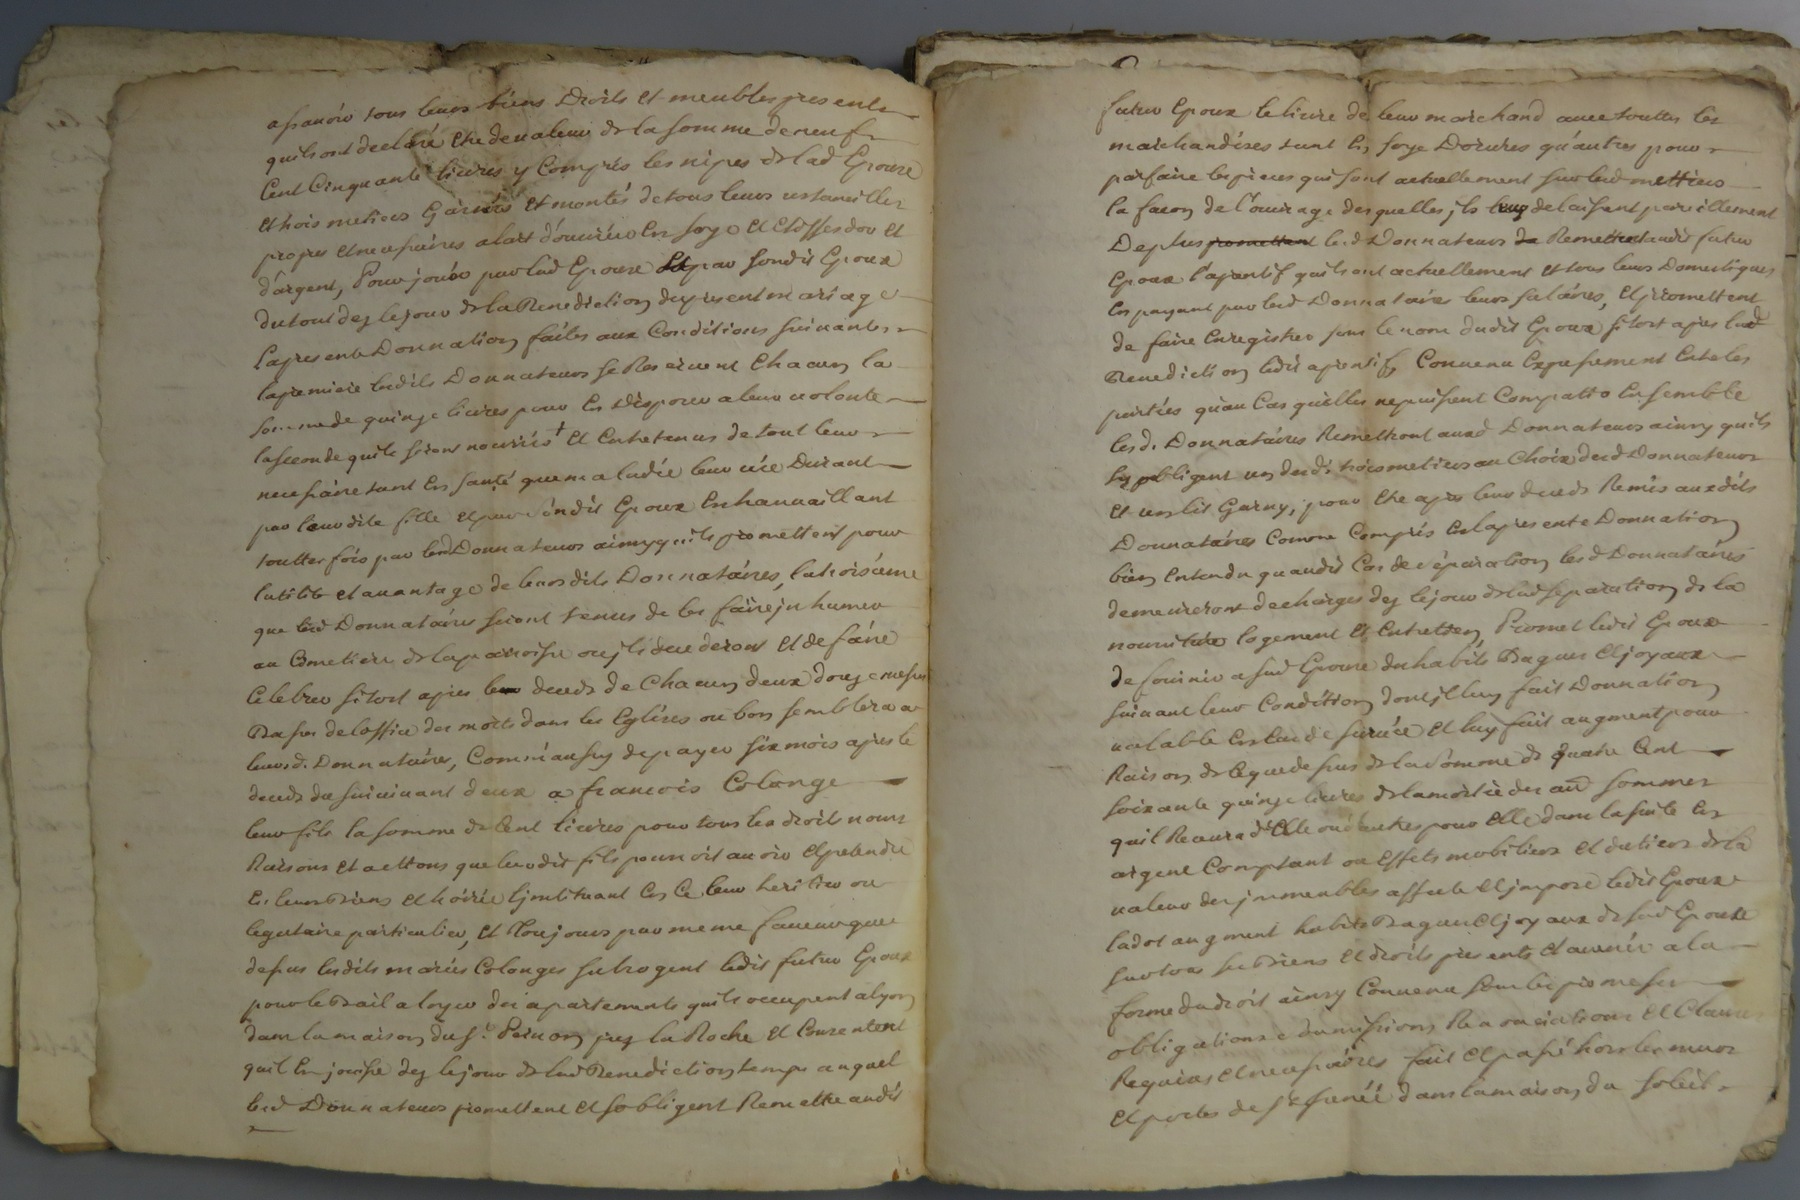 assavoir tous leurs biens Droits et meubles presents
quils ont declaré Etre de valeur de la somme de neuf
Cent Cinquante livres y Compris les nipes de lad Epouse
et trois metiers Garnis et montés de tous leurs ustancilles
propres et necessaires alart d'ouvrier En soye et Etoffes dor et
d'argent, Pour jouir par lad Epouse et par sondit Epoux
du tout dez le jour de la Benediction du present mariage
la presente Donnation faites aux Conditions suivantes
la premiere lesdits Donnateurs se Reservent Chacun la
somme de quinze livres pour En disposer a leur volonté
la seconde quils seront nourris + et Entretenus de tout leur
necessaire tant En santé que maladie leur vie Durant
par leurdite fille et par sondit Epoux En travaillant
touttes fois par lesd Donnateurs ainsy quils promettent pour
lutilité et avantage de leursdits Donnataires, la troisieme
que lesd Donnataires seront tenus de les faire jnhumer
au Cimetiere de la parroisse ou jls decederont et de faire
Celebrer sitost apres leur deceds de Chacun deux douze messes
Basses de loffice des morts dans les Eglises ou bon semblera a
leursd. Donnataires, Comm'aussy de payer six mois apres le
deceds du survivant deux a francois Colonge
leur fils la somme de Cent livres pour tous les droits noms
Raisons et actions que leurdit fils pourroit avoir et pretendre
En leurs Biens et hoirie Linstituant En Ce leur heritier ou
legataire particulier, et Toujours par meme faveur que
dessus lesdits mariés Colonges subrogent ledit futur Epoux
pour le Bail a loyer des apartements quils occupent a lyon
dans la maison du sr. Peinon prez la Roche et Consentent
quil En jouisse dez le jour de lad Benediction temps auquel
lesd Donnateurs promettent et sobligent Remettre audit
futur Epoux le livre de leur marchand avec touttes les
marchandises tant En soye Dorures qu'autres pour
parfaire les pieces qui sont actuellement sur lesd mettiers
la facon de l'ouvrage desquelles, jls leurs delaissent pareillement
De plus promettent lesd Donnateurs de Remettre audit futur
Epoux l'aprentif quils ont actuellement et tous leurs Domestiques
En payant par lesd Donnataires leurs salaires, et promettent
de faire Enregistrer sous le nom dudit Epoux sitost apres lad
Benediction ledit aprentif, Convenu Expressement Entre les
parties qu'au Cas qu'elles ne puissent Compatir Ensemble
les d. Donnataires Remettront ausd Donnateurs ainsy quils
sy obligent un desd. trois metiers au Choix desd Donnateurs
et un lit Garny, pour Etre apres leur deceds Remis auxdits
Donnataires Comme Compris En la presente Donnation
bien Entendu quaudit Cas de séparation lesd Donnataires
demeureront decharges dez le jour de lad separation de la
nourriture logement et Entretien, Promet ledit Epoux
de fournir a sad Epouse des habits Bagues et joyaux
suivant leur Condition dont jl luy fait Donnation
valable En Cas de survie et luy fait augment pour
Raison de Ce que dessus de la somme de quatre Cent
soixante quinze livres de la moitié des autres sommes
quil Recevra d'Elle ou d'autres pour Elle dans la suite En
argent Comptant ou Effets mobiliers et du tiers de la
valeur des jmmeubles affecte et jmpose ledit Epoux
la dot augment habits Bagues et joyaux de sad Epouse
sur tous ses Biens et droits presents et avenir a la
forme du droit ainsy Convenu sous les promesses
obligations soumissions Renonciations et Clauses
Requises et necessaires fait et passé hors les murs
et portes de st jrenéé dans la maison du soleil